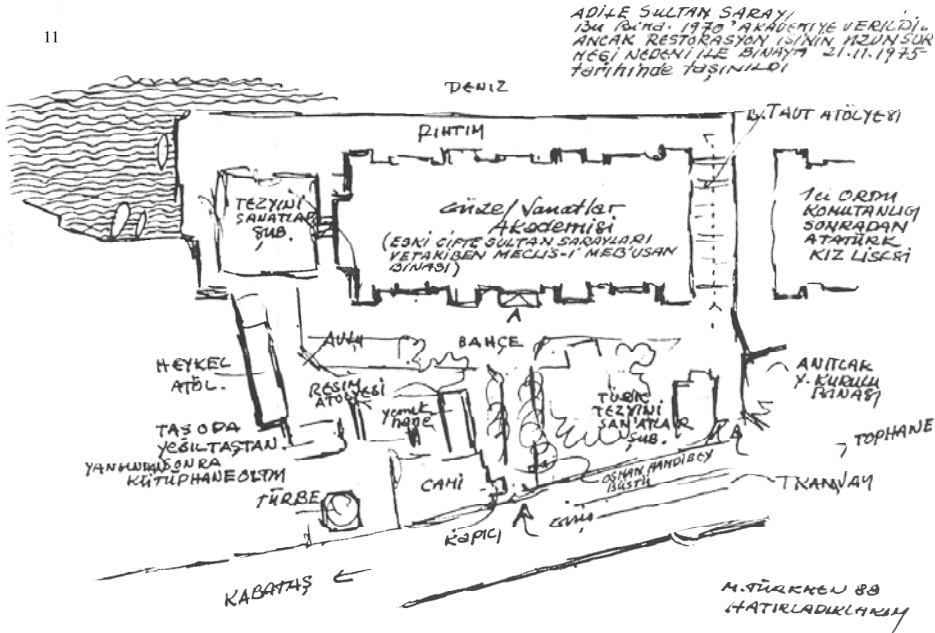 11
ADİLE SULTAN SARAYI
Bu Bina. 1970 'AKADEMİYE VERİLDİ.
ANCAK RESTORASYON İŞİNİN UZUN SÜR
MESİ NEDENİ İLE BİNAYA 21.11.1975
tarihinde taşınıldı
DENİZ
B. TAUT ATÖLYESİ
RIHTIM
TEZYİNİ
SANATLAR
ŞUB.
Güzel Sanatlar
Akademisi
(ESKİ ÇİFTE SULTAN SARAYLARI
VETAKİBEN MECLİS-İ MEB'USAN
BİNASI)
1ci ORDU
KOMUTANLIĞI
SONRADAN
ATATÜRK
KIZ LİSESİ
A
AVLU
BAHÇE
HEYKEL
ATÖL.
RESİM
ATÖLYESİ
yemek
hane
TÜRK
TEZYİNİ
SAN'ATLAR
ŞUB.
ANITLAR
Y. KURULU
BİNASI
TAŞ ODA
YEŞİLTAŞTAN.
YANGINDAN SONRA
KÜTÜPHANE OLDU
TOPHANE
CAMİ
OSMAN HAMDİ BEY
BÜSTÜ
TRAMVAY
TÜRBE
Kapıcı
KABATAŞ
M. TÜRKMEN 88
HATIRLADIKLARIM